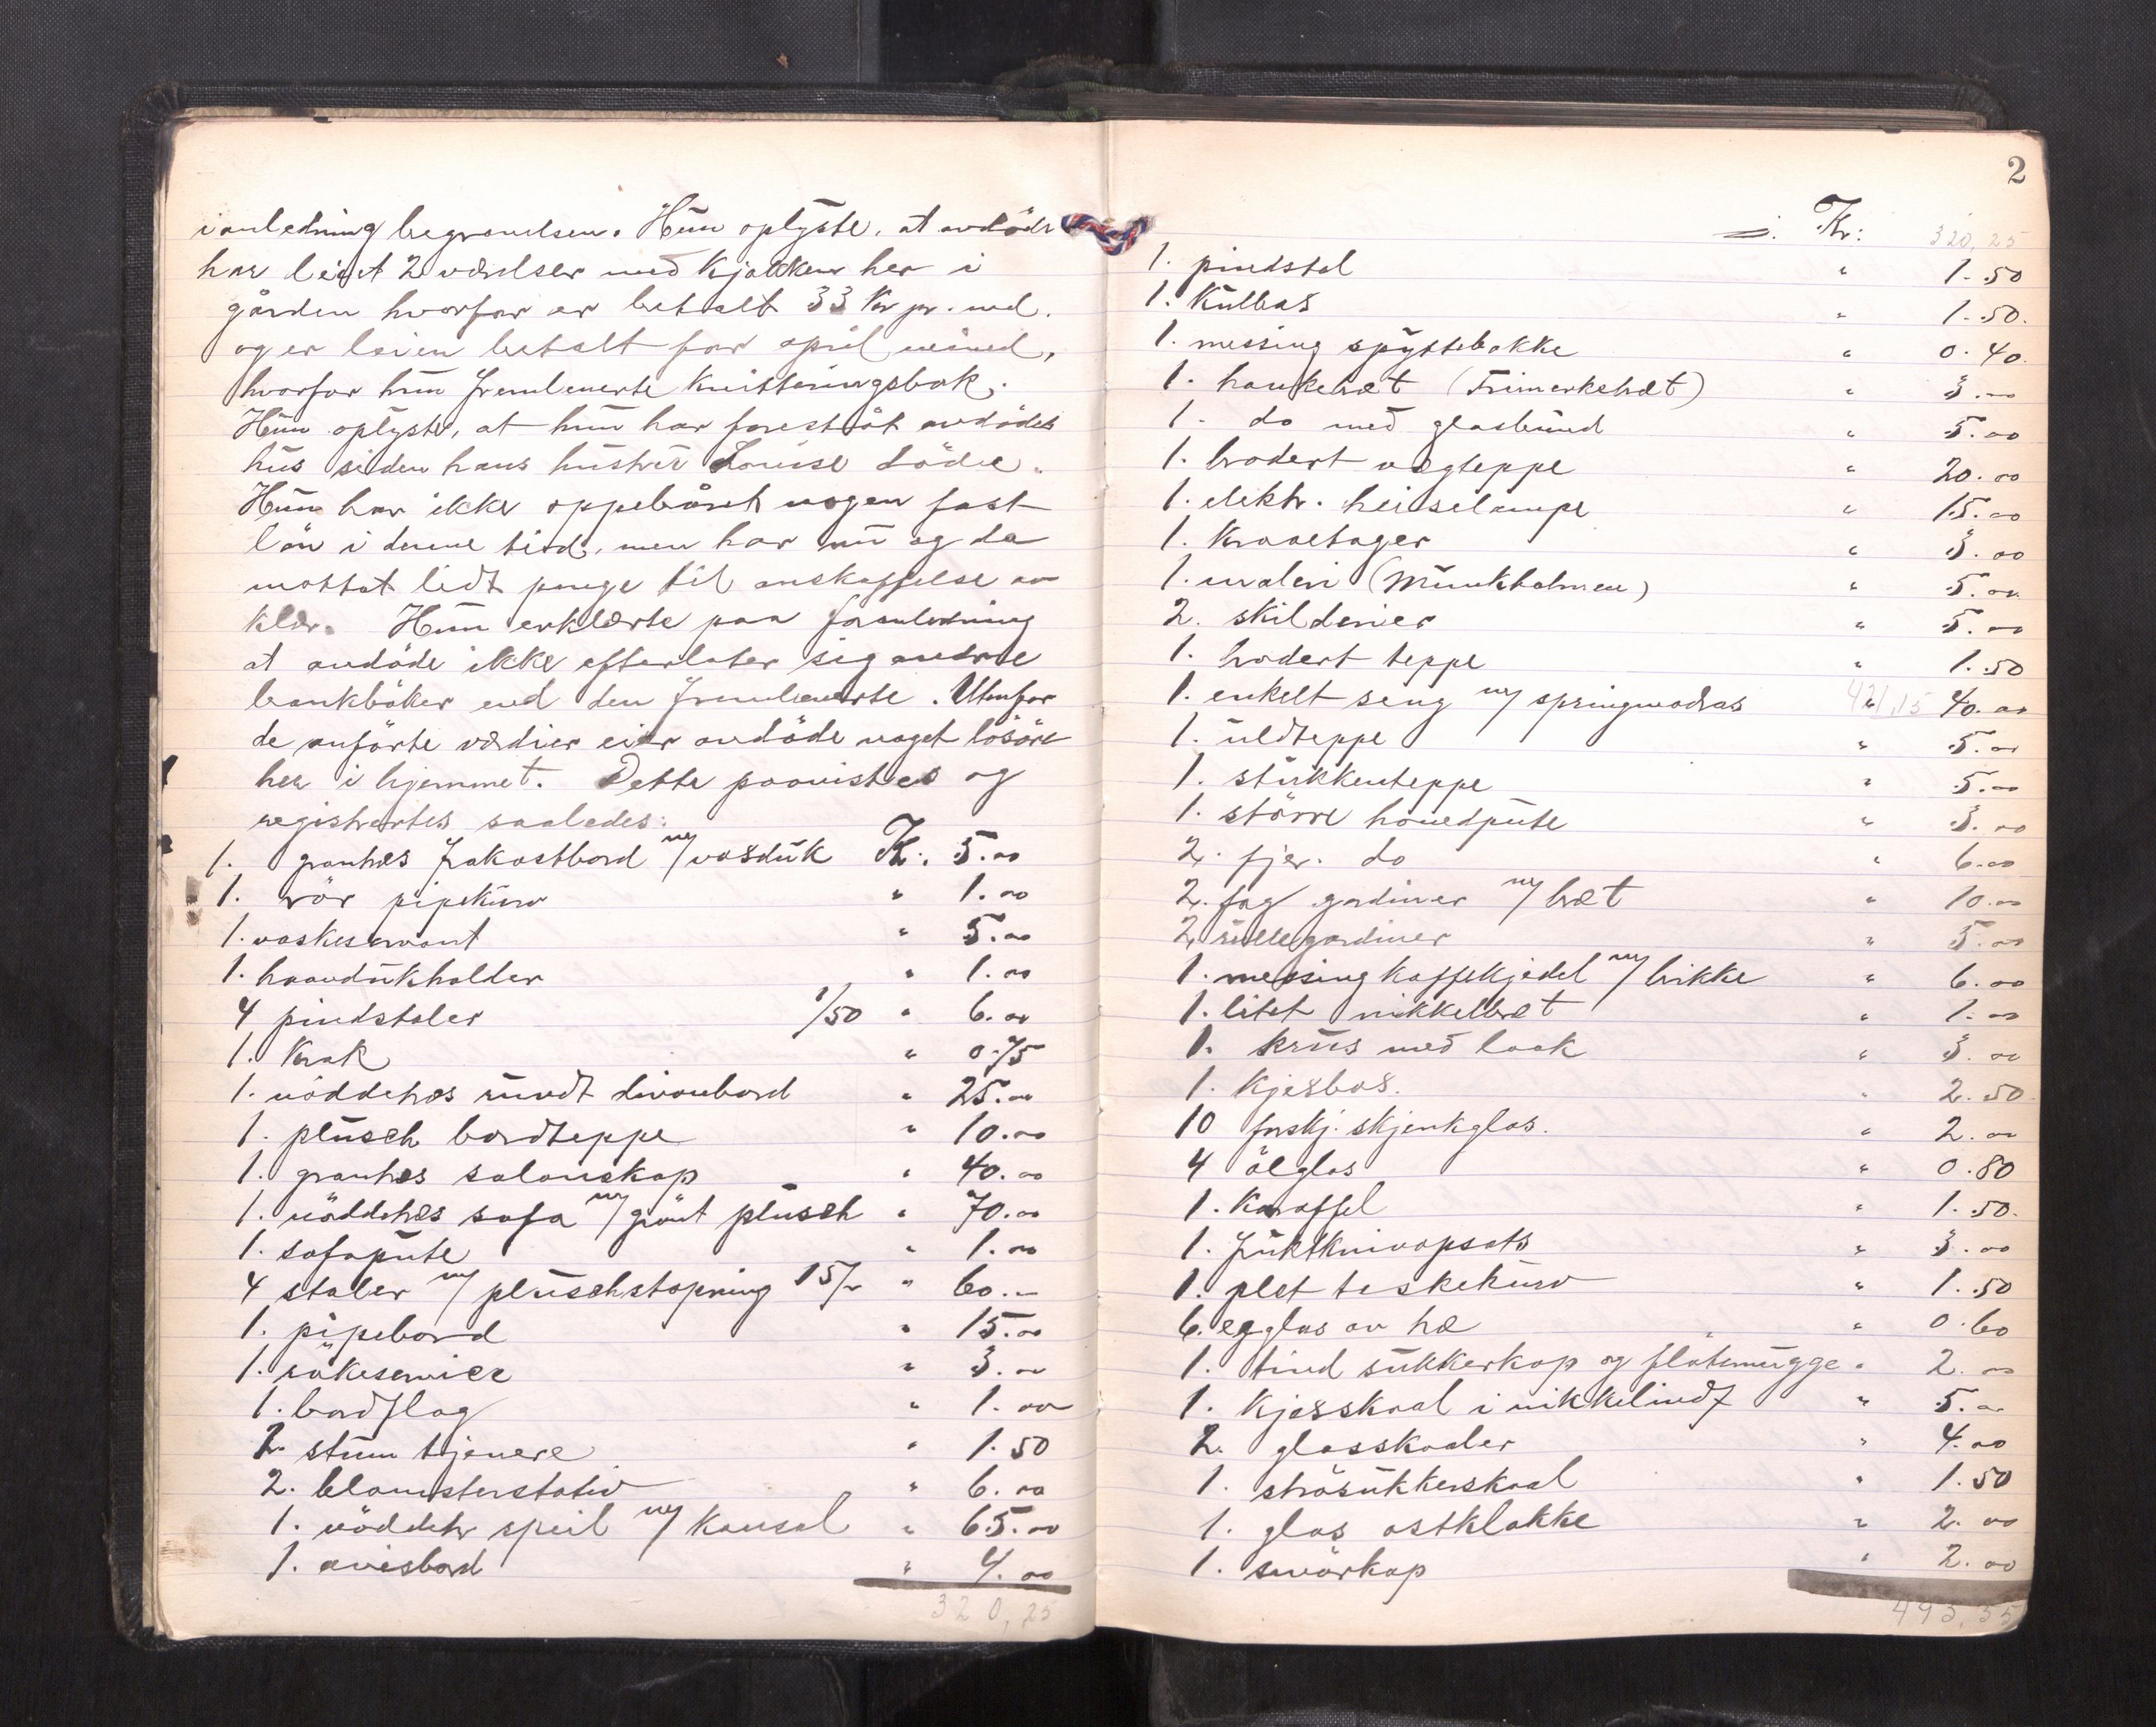 i anledning begravelsen. Hun oplyste, at avdöde
har leiet 2 værelser med kjökken her i
gården hvorfor er betalt 33 Kr pr. md.
og er leien betalt for april måned,
hvorfor hun fremleverte kvitteringsbok.
Hun oplyste, at hun har forestått avdödes
hus siden hans hustru Lovise döde.
Hun har ikke oppebåret nogen fast
lön i denne tid, men har nu og da
mottat lidt penge til anskaffelse av
klær. Hun erklærte paa foranledning
at avdöde ikke efterlater sig andre
bankböker end den fremleverte. Utenfor
de anförte værdier eier avdöde noget lösöre
her i hjemmet. Dette paavistes og
registrertes saaledes:
1. grantræs frokostbord m/ voksduk Kr. 5.00
1. rör pipekurv " 1.00
1. vaskeservant " 5.00
1. haandukholder " 1.00
4 pindstoler 1/50 " 6.00
1. Krak " 0.75
1. nöddetræs rundt divanbord " 25.00
1. plüsch bordteppe " 10.00
1. grantræs salonskap " 40.00
1. nöddetræs sofa m/ grönt plüsch " 70.00
1. sofapute " 1.00
4 stoler m/ plüschstopning 15/- " 60.-
1. pipebord " 15.00
1. rökeservice " 3.00
1. bordflag " 1.00
2. stum tjenere " 1.50
2. blomsterstativ " 6.00
1. nöddetr. speil m/ konsol " 65.00
1. avisbord " 4.00
320,25
2
Kr: 320,25
1. pindstol " 1.50
1. Kulbas " 1.50.
1. messing spyttebakke " 0.40.
1. hankebræt (Frimerkebræt) " 3.00
1. do med glasbund " 5.00
1. brodert vægteppe " 20.00
1. elektr. heiselampe " 15.00
1. Kravetager " 3.00
1. maleri (Munkholmen) " 5.00
2. skilderier " 5.00
1. brodert teppe " 1.50
1. enkelt seng m/ springmadras 421,15 " 40.00
1. uldteppe " 5.00
1. stukkenteppe " 5.00
1. större hovedpute " 3.00
2. fjer. do " 6.00
2. fag gardiner m/ bræt " 10.00
2. rullegardiner " 5.00
1. messing kaffekjedel m/ brikke " 6.00
1. litet nikkelbræt " 1.00
1. krus med laak " 3.00
1. Kjeksbas. " 2.50
10 forskj. skjenkglas. " 2.00
4 ölglas " 0.80
1. Karaffel " 1.50.
1. fruktknivopsats " 3.00
1. plet teskekurv " 1.50
6. egglas av træ " 0.60
1. tind sukkerkop og flötemugge " 2.00
1. Kjeksskaal i nikkelindf. " 5.00
2. glasskaaler " 4.00
1. strösukkerskaal " 1.50
1. glas ostklokke " 2.00
1. smörkop " 2.00
493,35